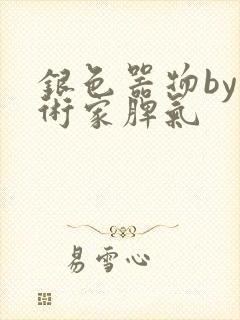 銀色器物by
術家脾氣
易雪心